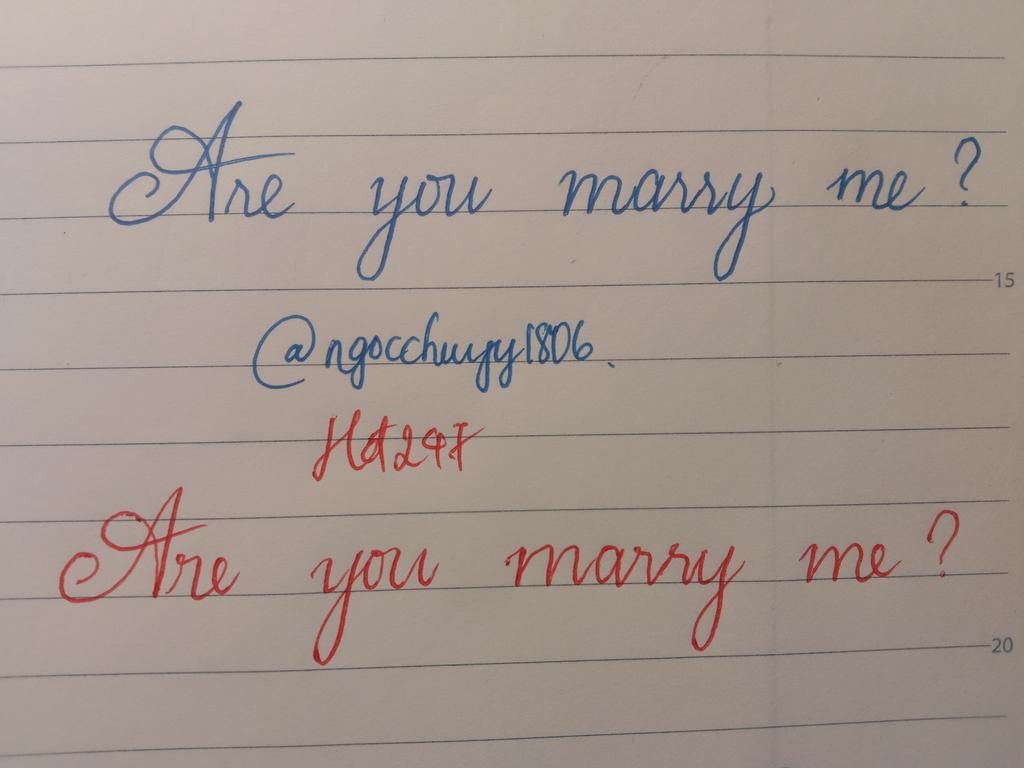 Are you marry me ?
15
@ngocchuyy1806.
Hd247
Are you marry me ?
20